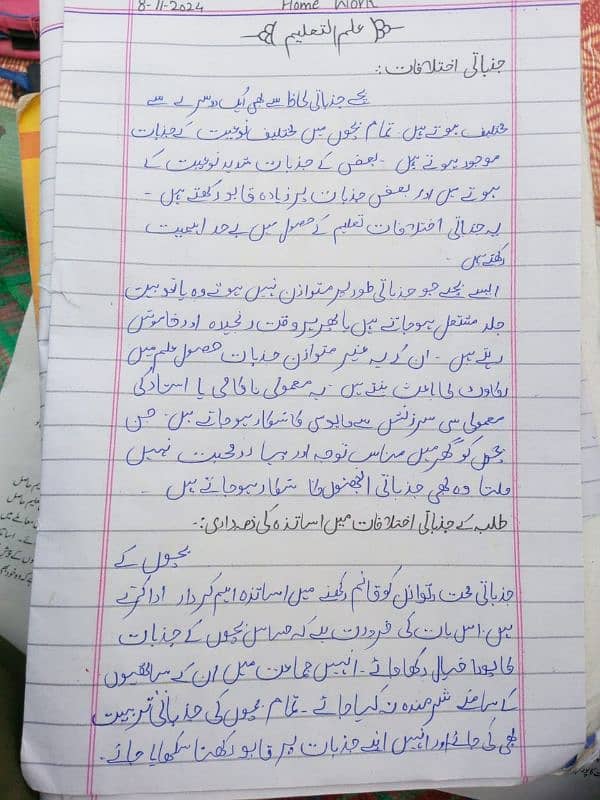 8-11-2024 Home Work
علم التعلیم
جذباتی اختلافات :-
بچے جذباتی لحاظ سے بھی ایک دوسرے سے
مختلف ہوتے ہیں۔ تمام بچوں میں مختلف نوعیت کے جذبات
موجود ہوتے ہیں ۔ بعض کے جذبات شدید نوعیت کے
ہوتے ہیں اور بعض جذبات پر زیادہ قابو رکھتے ہیں ۔
یہ جذباتی اختلافات تعلیم کے حصول میں بے حد اہمیت
رکھتے ہیں ۔
ایسے بچے جو جذباتی طور پر متوازن نہیں ہوتے وہ یا تو بہت
جلد مشتعل ہو جاتے ہیں یا پھر ہر وقت رنجیدہ اور خاموش
رہتے ہیں ۔ ان کے یہ غیر متوازن جذبات حصول علم میں
رکاوٹ کا باعث بنتے ہیں ۔ یہ معمولی ناکامی یا استاد کی
معمولی سی سرزنش سے مایوسی کا شکار ہو جاتے ہیں ۔ جن
بچوں کو گھر میں مناسب توجہ اور پیار و محبت نہیں
ملتا وہ بھی جذباتی الجھنوں کا شکار ہو جاتے ہیں ۔
طلبہ کے جذباتی اختلافات میں اساتذہ کی ذمہ داری :-
بچوں کے
جذباتی صحت و توازن کو قائم رکھنے میں اساتذہ اہم کردار ادا کرتے
ہیں۔ اس بات کی ضرورت ہے کہ مدارس میں بچوں کے جذبات
کا پورا خیال رکھا جائے ۔ انہیں جماعت میں ان کے ساتھیوں
کے سامنے شرمندہ نہ کیا جائے ۔ تمام بچوں کی جذباتی تربیت
بھی کی جائے اور انہیں اپنے جذبات پر قابو رکھنا سکھایا جائے ۔